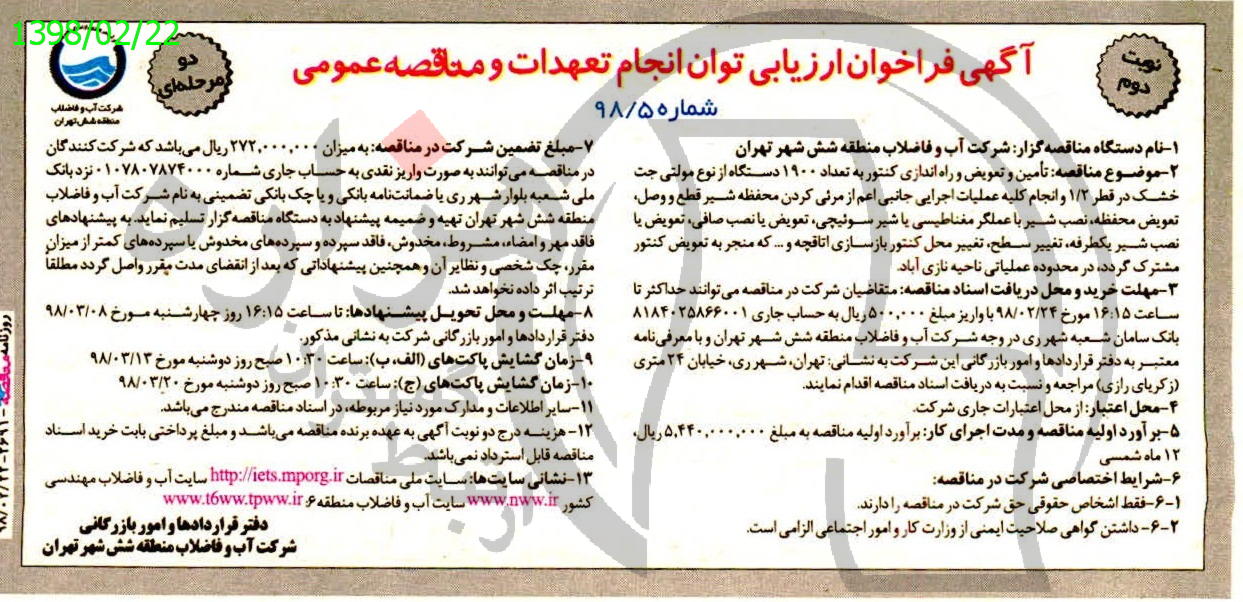 1398/02/22
نوبت
دوم
آگهی فراخوان ارزیابی توان انجام تعهدات و مناقصه عمومی
شماره ۹۸/۵
دو
مرحله‌ای
شرکت آب و فاضلاب
منطقه شش تهران
۱-نام دستگاه مناقصه گزار: شرکت آب و فاضلاب منطقه شش شهر تهران
۲-موضوع مناقصه: تأمین و تعویض و راه اندازی کنتور به تعداد ۱۹۰۰ دستگاه از نوع مولتی جت
خشک در قطر ۱/۲ و انجام کلیه عملیات اجرایی جانبی اعم از مرئی کردن محفظه شیر قطع و وصل،
تعویض محفظه، نصب شیر با عملگر مغناطیسی یا شیر سوئیچی، تعویض یا نصب صافی، تعویض یا
نصب شیر یکطرفه، تغییر سطح، تغییر محل کنتور بازسازی اتاقچه و... که منجر به تعویض کنتور
مشترک گردد، در محدوده عملیاتی ناحیه نازی آباد.
۳-مهلت خرید و محل دریافت اسناد مناقصه: متقاضیان شرکت در مناقصه می‌توانند حداکثر تا
ساعت ۱۶:۱۵ مورخ ۹۸/۰۲/۲۴ با واریز مبلغ ۵۰۰,۰۰۰ ریال به حساب جاری ۸۱۸۴۰۲۵۸۶۶۰۰۱
بانک سامان شعبه شهر ری در وجه شرکت آب و فاضلاب منطقه شش شهر تهران و با معرفی‌نامه
معتبر به دفتر قراردادها و امور بازرگانی این شرکت به نشانی: تهران، شهر ری، خیابان ۲۴ متری
(زکریای رازی) مراجعه و نسبت به دریافت اسناد مناقصه اقدام نمایند.
۴-محل اعتبار: از محل اعتبارات جاری شرکت.
۵-برآورد اولیه مناقصه و مدت اجرای کار: برآورد اولیه مناقصه به مبلغ ۵,۴۴۰,۰۰۰,۰۰۰ ریال،
۱۲ ماه شمسی
۶-شرایط اختصاصی شرکت در مناقصه:
۶-۱-فقط اشخاص حقوقی حق شرکت در مناقصه را دارند.
۶-۲- داشتن گواهی صلاحیت ایمنی از وزارت کار و امور اجتماعی الزامی است.
۷-مبلغ تضمین شرکت در مناقصه: به میزان ۲۷۲,۰۰۰,۰۰۰ ریال می‌باشد که شرکت کنندگان
در مناقصه می‌توانند به صورت واریز نقدی به حساب جاری شماره ۰۱۰۷۸۰۷۸۷۴۰۰۰ نزد بانک
ملی شعبه بلوار شهر ری یا ضمانت‌نامه بانکی و یا چک بانکی تضمینی به نام شرکت آب و فاضلاب
منطقه شش شهر تهران تهیه و ضمیمه پیشنهاد به دستگاه مناقصه گزار تسلیم نماید. به پیشنهادهای
فاقد مهر و امضاء، مشروط، مخدوش، فاقد سپرده و سپرده‌های مخدوش یا سپرده‌های کمتر از میزان
مقرر، چک شخصی و نظایر آن و همچنین پیشنهاداتی که بعد از انقضای مدت مقرر واصل گردد مطلقا
ترتیب اثر داده نخواهد شد.
۸-مهلت و محل تحویل پیشنهادها: تا ساعت ۱۶:۱۵ روز چهارشنبه مورخ ۹۸/۰۳/۰۸
دفتر قراردادها و امور بازرگانی شرکت به نشانی مذکور.
۹-زمان گشایش پاکت‌های (الف، ب): ساعت ۱۰:۳۰ صبح روز دوشنبه مورخ ۹۸/۰۳/۱۳
۱۰-زمان گشایش پاکت‌های (ج): ساعت ۱۰:۳۰ صبح روز دوشنبه مورخ ۹۸/۰۳/۲۰
۱۱-سایر اطلاعات و مدارک مورد نیاز مربوطه، در اسناد مناقصه مندرج می‌باشد.
۱۲- هزینه درج دو نوبت آگهی به عهده برنده مناقصه می‌باشد و مبلغ پرداختی بابت خرید اسناد
مناقصه قابل استرداد نمی‌باشد.
۱۳-نشانی سایت‌ها: سایت ملی مناقصات http://iets.mporg.ir سایت آب و فاضلاب مهندسی
کشور www.nww.ir سایت آب و فاضلاب منطقه ۶: www.t6ww.tpww.ir
دفتر قراردادها و امور بازرگانی
شرکت آب و فاضلاب منطقه شش شهر تهران
روزنامه مناقصه